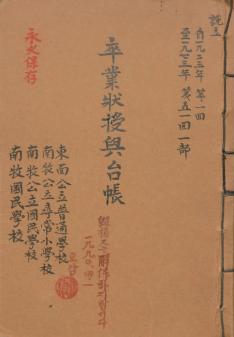 自一九二三年 第一回
至一九七三年 第五一回 一部
永久保存
卒業狀授與台帳
東面公立普通學校
南牧公立尋常小學校
南牧公立國民學校
南牧國民學校
一九九〇.四.一